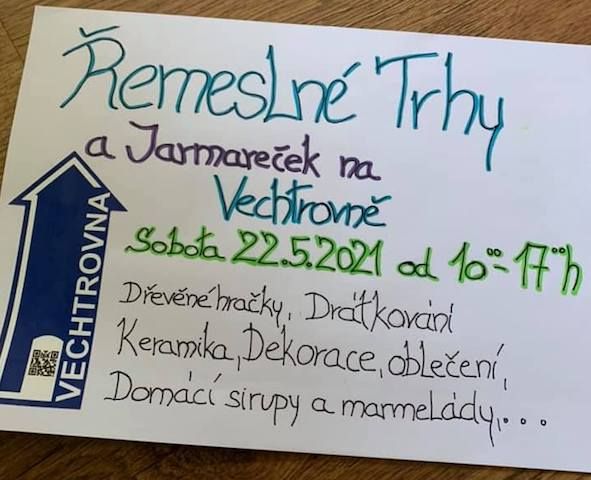 Řemeslné Trhy
a Jarmareček na
Vechtrovně
Sobota 22.5.2021 od 10⁰⁰-17⁰⁰h
Dřevěné hračky, Drátkování
Keramika, Dekorace, oblečení,
Domácí sirupy a marmelády,...
VECHTROVNA